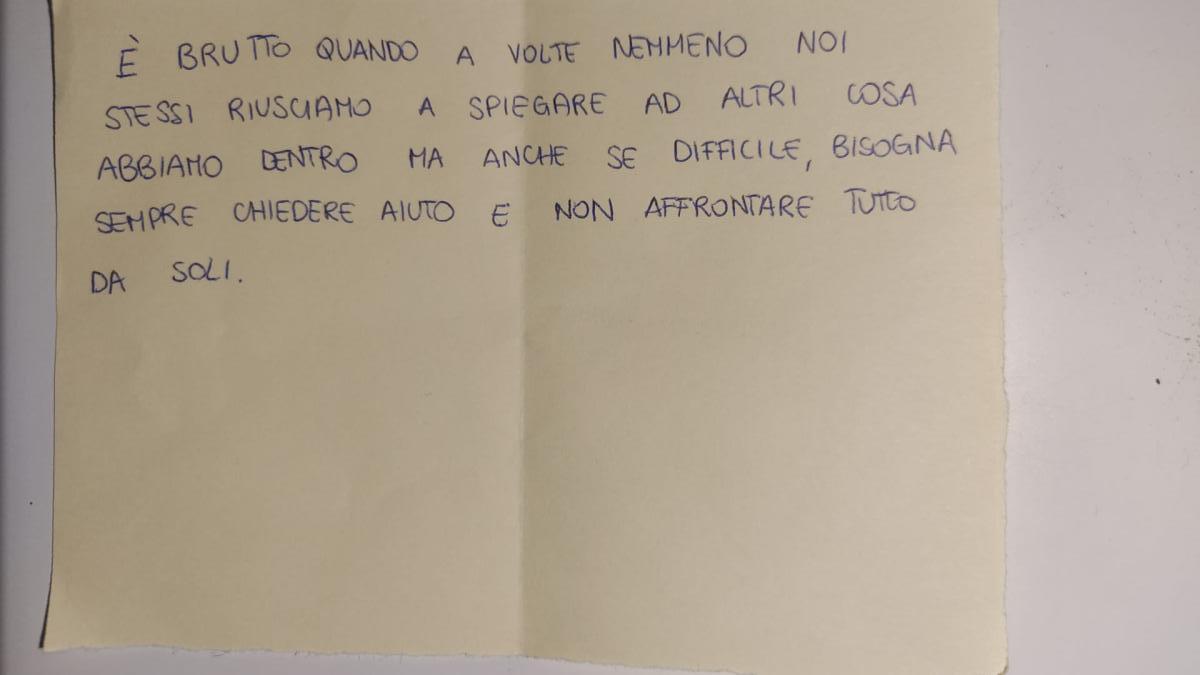 È BRUTTO QUANDO A VOLTE NEMMENO NOI
STESSI RIUSCIAMO A SPIEGARE AD ALTRI COSA
ABBIAMO DENTRO MA ANCHE SE DIFFICILE, BISOGNA
SEMPRE CHIEDERE AIUTO E NON AFFRONTARE TUTTO
DA SOLI.